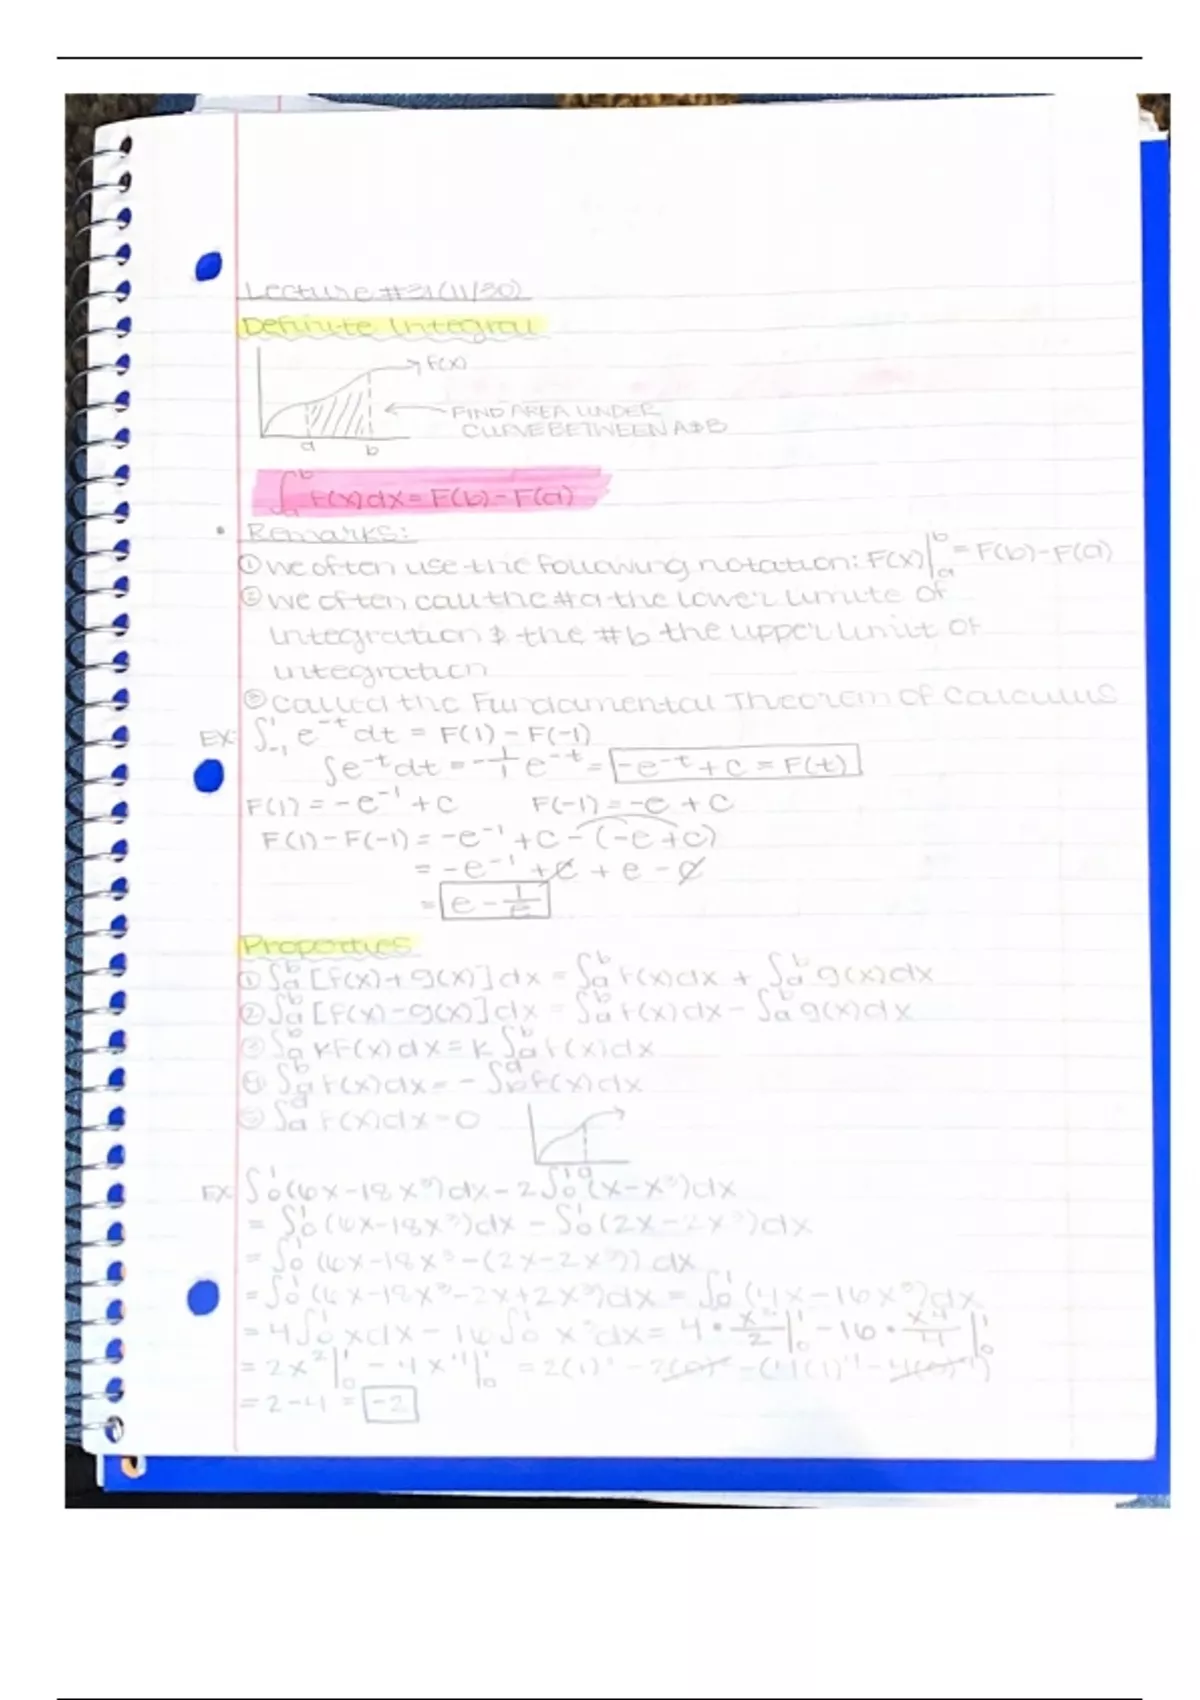 Lecture #31 (11/30)
Definite Integral
F(x)
FIND AREA UNDER
CURVE BETWEEN A & B
a b
∫_a^b F(x)dx = F(b) - F(a)
• Remarks:
① we often use the following notation: F(x)|_a^b = F(b) - F(a)
② we often call the # a the lower limite of
integration & the # b the upper limit of
integration
③ called the Fundamental Theorem of Calculus
EX: ∫_{-1}^1 e^{-t} dt = F(1) - F(-1)
∫e^{-t}dt = -1/1 e^{-t} = -e^{-t} + C = F(t)
F(1) = -e^{-1} + C F(-1) = -e + C
F(1) - F(-1) = -e^{-1} + C - (-e + C)
= -e^{-1} + C + e - C
= e - 1/e
Properties
① ∫_a^b [f(x) + g(x)]dx = ∫_a^b f(x)dx + ∫_a^b g(x)dx
② ∫_a^b [f(x) - g(x)]dx = ∫_a^b f(x)dx - ∫_a^b g(x)dx
③ ∫_a^b kf(x)dx = k ∫_a^b f(x)dx
④ ∫_a^b f(x)dx = - ∫_b^a f(x)dx
⑤ ∫_a^a f(x)dx = 0
a
EX: ∫_0^1 (6x - 18x^3)dx - 2∫_0^1 (x - x^3)dx
= ∫_0^1 (6x - 18x^3)dx - ∫_0^1 (2x - 2x^3)dx
= ∫_0^1 (6x - 18x^3 - (2x - 2x^3))dx
= ∫_0^1 (6x - 18x^3 - 2x + 2x^3)dx = ∫_0^1 (4x - 16x^3)dx
= 4∫_0^1 xdx - 16∫_0^1 x^3dx = 4 • x^2/2 |_0^1 - 16 • x^4/4 |_0^1
= 2x^2|_0^1 - 4x^4|_0^1 = 2(1)^2 - 2(0)^2 - (4(1)^4 - 4(0)^4)
= 2 - 4 = -2